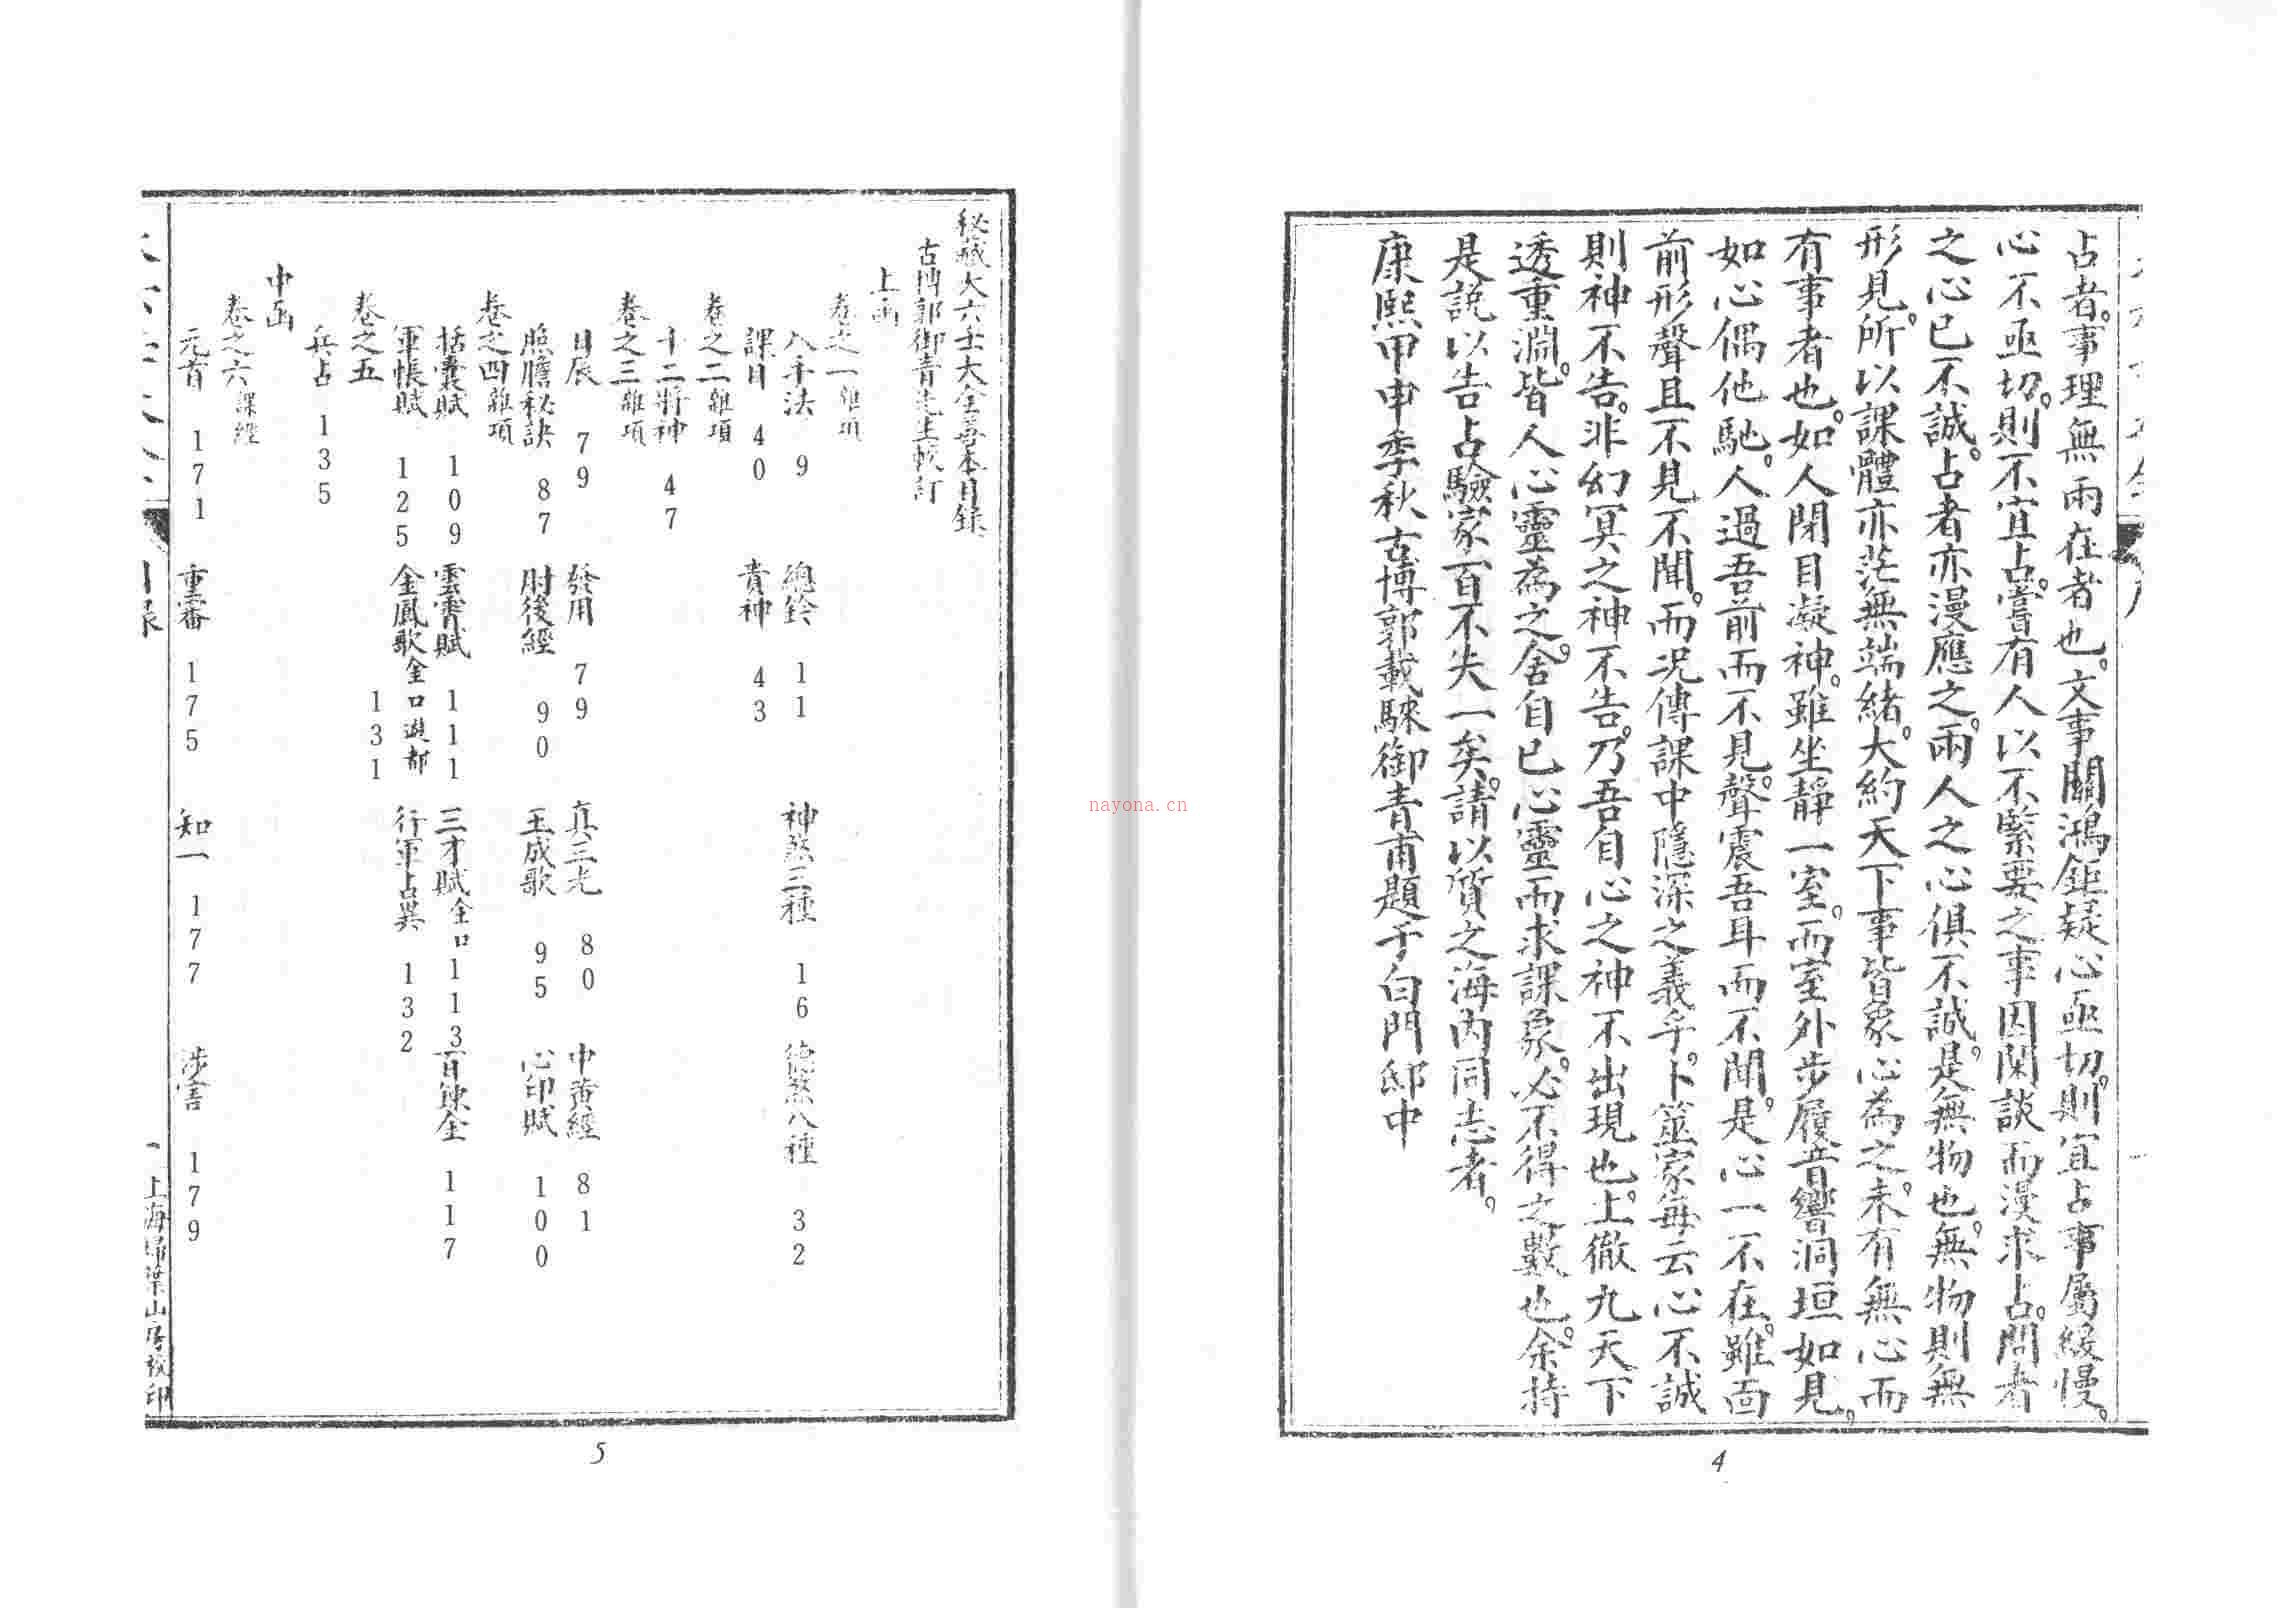 占者。事理無兩在者也。文事關鴻鉅疑心亟切。則宜占事屬緩慢。
心不亟切。則不宜占。嘗有人以不緊要之事因閑談而漫求占。問者
之心已不誠。占者亦漫應之。兩人之心俱不誠。是無物也。無物則無
形見。所以課體亦茫無端緒。大約天下事皆象心為之。未有無心而
有事者也。如人閉目凝神。雖坐靜一室。而室外步履音響洞垣如見。
如心偶他馳。人過吾前而不見。聲震吾耳而不聞。是心一不在。雖面
前形聲且不見不聞。而況傳課中隱深之義乎。卜筮家每云心不誠
則神不告。非幻冥之神不告。乃吾自心之神不出現也。上徹九天下
透重淵。皆人心靈為之。舍自已心靈而求課象。必不得之數也。余持
是說以告占驗家。百不失一矣。請以質之海內同志者。
康熙甲申季秋古博郭載騋御青甫題于白門邸中
4
秘藏大六壬大全善本目錄
古博郭御青先生較訂
上函
卷之一雜項
入手法 9 總鈐 11 神煞三種 16 德煞八種 32
課目 40 貴神 43
卷之二雜項
十二將神 47
卷之三雜項
日辰 79 發用 79 真三光 80 中黃經 81
照膽秘訣 87 肘後經 90 玉成歌 95 心印賦 100
卷之四雜項
括囊賦 109 雲霄賦 111 三才賦金口 113 百鍊金 117
軍帳賦 125 金鳳歌金口遊都 131 行軍占異 132
卷之五
兵占 135
中函
卷之六課經
元首 171 重審 175 知一 177 涉害 179
目錄
一 上海掃葉山房校印
5
nayona.cn